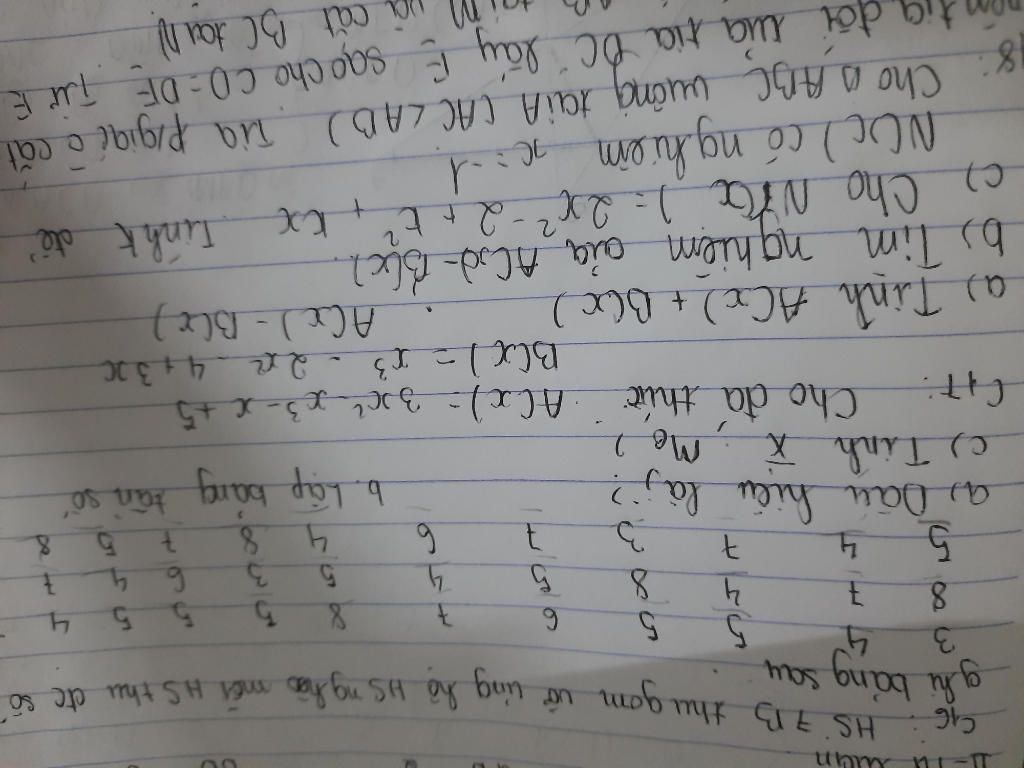 II - Tự luận
C16: HS 7B thu gom vở ủng hộ HS nghèo mỗi HS thu đc số
ghi bảng sau
3 4 5 5 6 7 8 5 5 5 4
8 7 4 8 5 4 5 3 6 4 7
5 4 7 3 7 6 4 8 7 5 8
a) Dấu hiệu là j? b. Lập bảng tần số
c) Tính X̄. Mo?
C17: Cho đa thức A(x) = 3x² - x³ - x + 5
B(x) = x³ - 2x² - 4 + 3x
a) Tính A(x) + B(x) . A(x) - B(x)
b) Tìm nghiệm của A(x) - B(x).
c) Cho N(x) = 2x² - 2 + k² + kx. Tính k để
N(x) có nghiệm x = -1
18: Cho Δ ABC vuông tại A (AC < AB) Tia p/giác C cắt
tia đối của tia DC lấy E sao cho CD = DE Từ E
tại M và cắt BC tại N